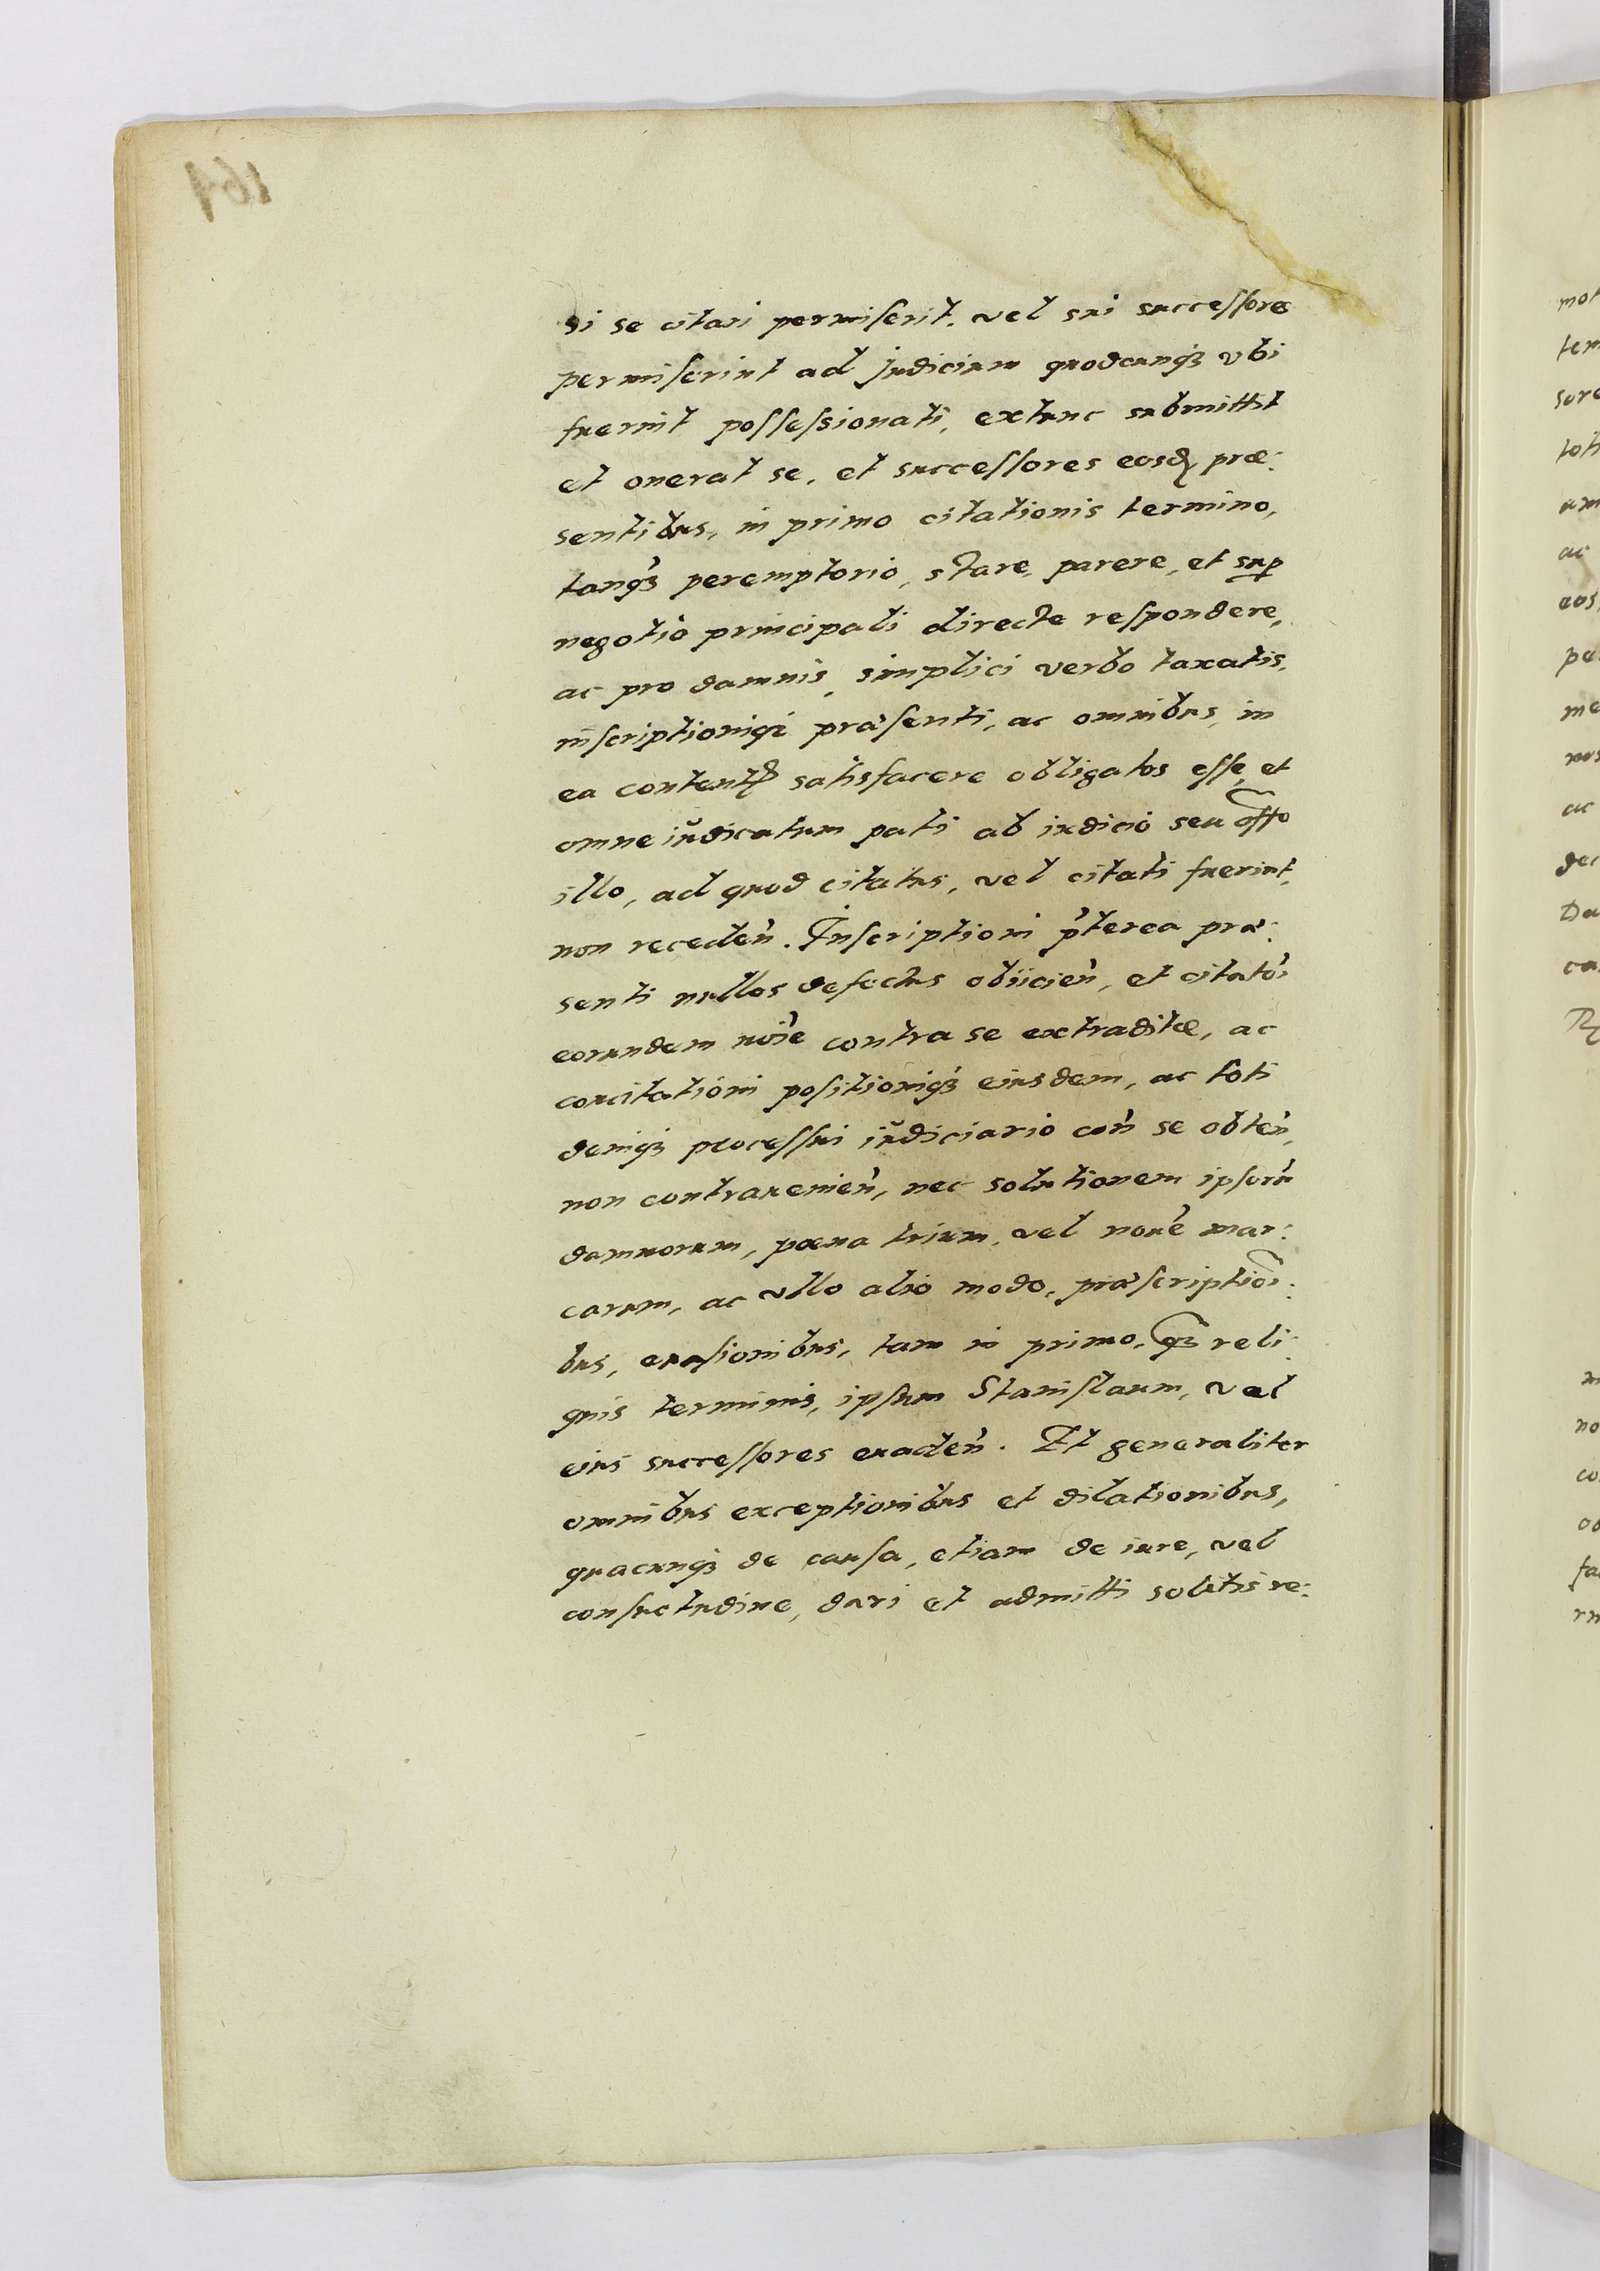 si se citari permiserit, vel sui successores
permiserint ad judicium quodcunq3 vbi
fuerint possessionati, extunc submittit
et onerat se, et successores eosd prae:
sentibus, in primo citationis termino,
tanq3 peremptorio, stare, parere, et sup
negotio principali directe respondere,
ac pro damnis, simplici verbo taxatis,
inscriptioniq3 praesenti, ac omnibus, in
ea content satisfacere obligatos esse, et
omne iudicatum pati ab iudicio seu offo
illo, ad quod citatus, vel citati fuerint,
non receden. Inscriptioni pterea prae:
senti nullos defectus obiicien, et citatoi
eorundem noie contra se extraditae, ac
concitationi positioniq3 eiusdem, ac toti
deniq3 processui iudiciario con se obten,
non contrauenien, nec solutionem ipsoru
damnorum, poena trium, vel noue mar:
carum, ac vllo alio modo, praescriptioi:
bus, euasionibus, tam in primo, q3 reli:
quis terminis, ipsum Stanislaum, vel
eius successores euaden. Et generaliter
omnibus exceptionibus et dilationibus,
quacunq3 de causa, etiam de iure, vel
consuetudine, dari et admitti solitis re: